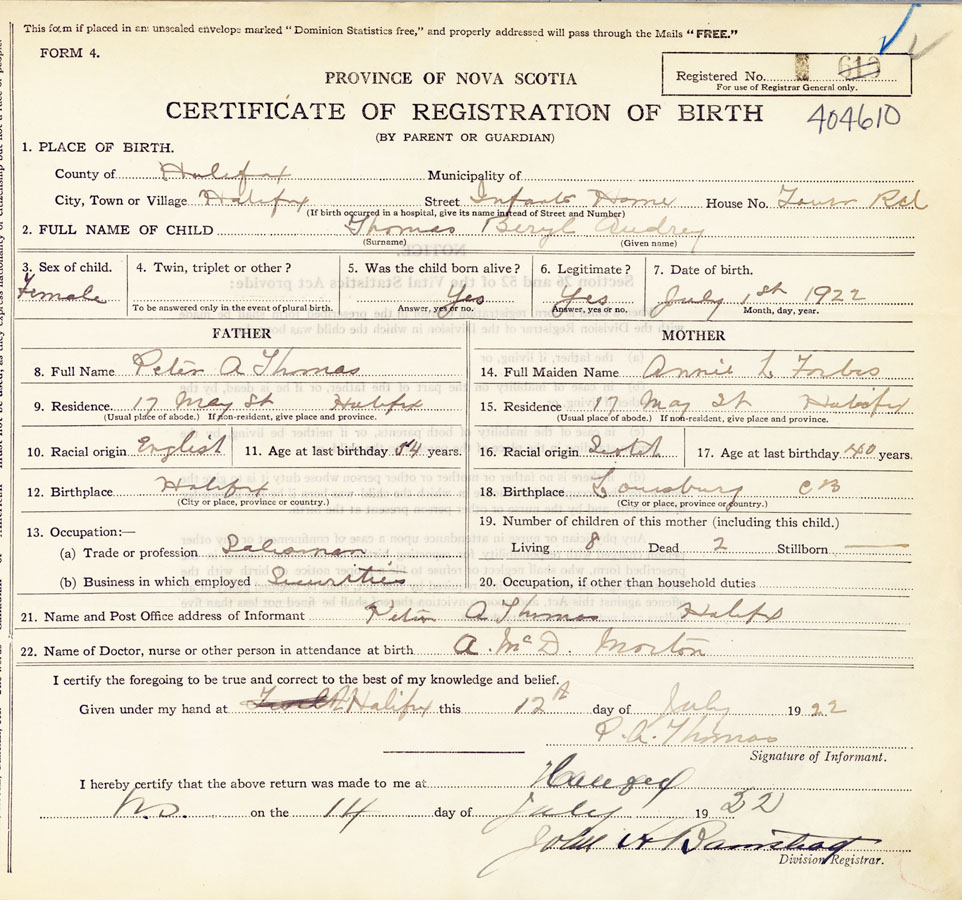 This form if placed in an unsealed envelope marked "Dominion Statistics free," and properly addressed will pass through the Mails "FREE."
FORM 4.
PROVINCE OF NOVA SCOTIA
Registered No. 613
For use of Registrar General only.
CERTIFICATE OF REGISTRATION OF BIRTH 404610
(BY PARENT OR GUARDIAN)
1. PLACE OF BIRTH.
County of Halifax Municipality of
City, Town or Village Halifx Street Infants Home House No. Tower Rd
(If birth occurred in a hospital, give its name instead of Street and Number)
2. FULL NAME OF CHILD Thomas Beryl Audrey
(Surname) (Given name)
3. Sex of child. 4. Twin, triplet or other? 5. Was the child born alive? 6. Legitimate? 7. Date of birth.
Female Yes Yes July 1st 1922
To be answered only in the event of plural birth. Answer, yes or no. Answer, yes or no. Month, day, year.
FATHER MOTHER
8. Full Name Peter A Thomas 14. Full Maiden Name Annie L Forbes
9. Residence. 17 May St Halifx 15. Residence 17 May St Halifx
(Usual place of abode.) If non-resident, give place and province. (Usual place of abode.) If non-resident, give place and province.
10. Racial origin English 11. Age at last birthday 54 years. 16. Racial origin Scotch 17. Age at last birthday 40 years.
12. Birthplace Halifx 18. Birthplace Louisburg C B
(City or place, province or country.) (City or place, province or country.)
13. Occupation:— 19. Number of children of this mother (including this child.)
(a) Trade or profession Salesman Living 8 Dead 2 Stillborn —
(b) Business in which employed Securities 20. Occupation, if other than household duties
21. Name and Post Office address of Informant Peter A Thomas Halifx
22. Name of Doctor, nurse or other person in attendance at birth A. McD. Morton
I certify the foregoing to be true and correct to the best of my knowledge and belief.
Given under my hand at Halifx this 12th day of July 1922
P. A. Thomas
Signature of Informant.
I hereby certify that the above return was made to me at
N.S. on the 14 day of July 1922
John
Division Registrar.